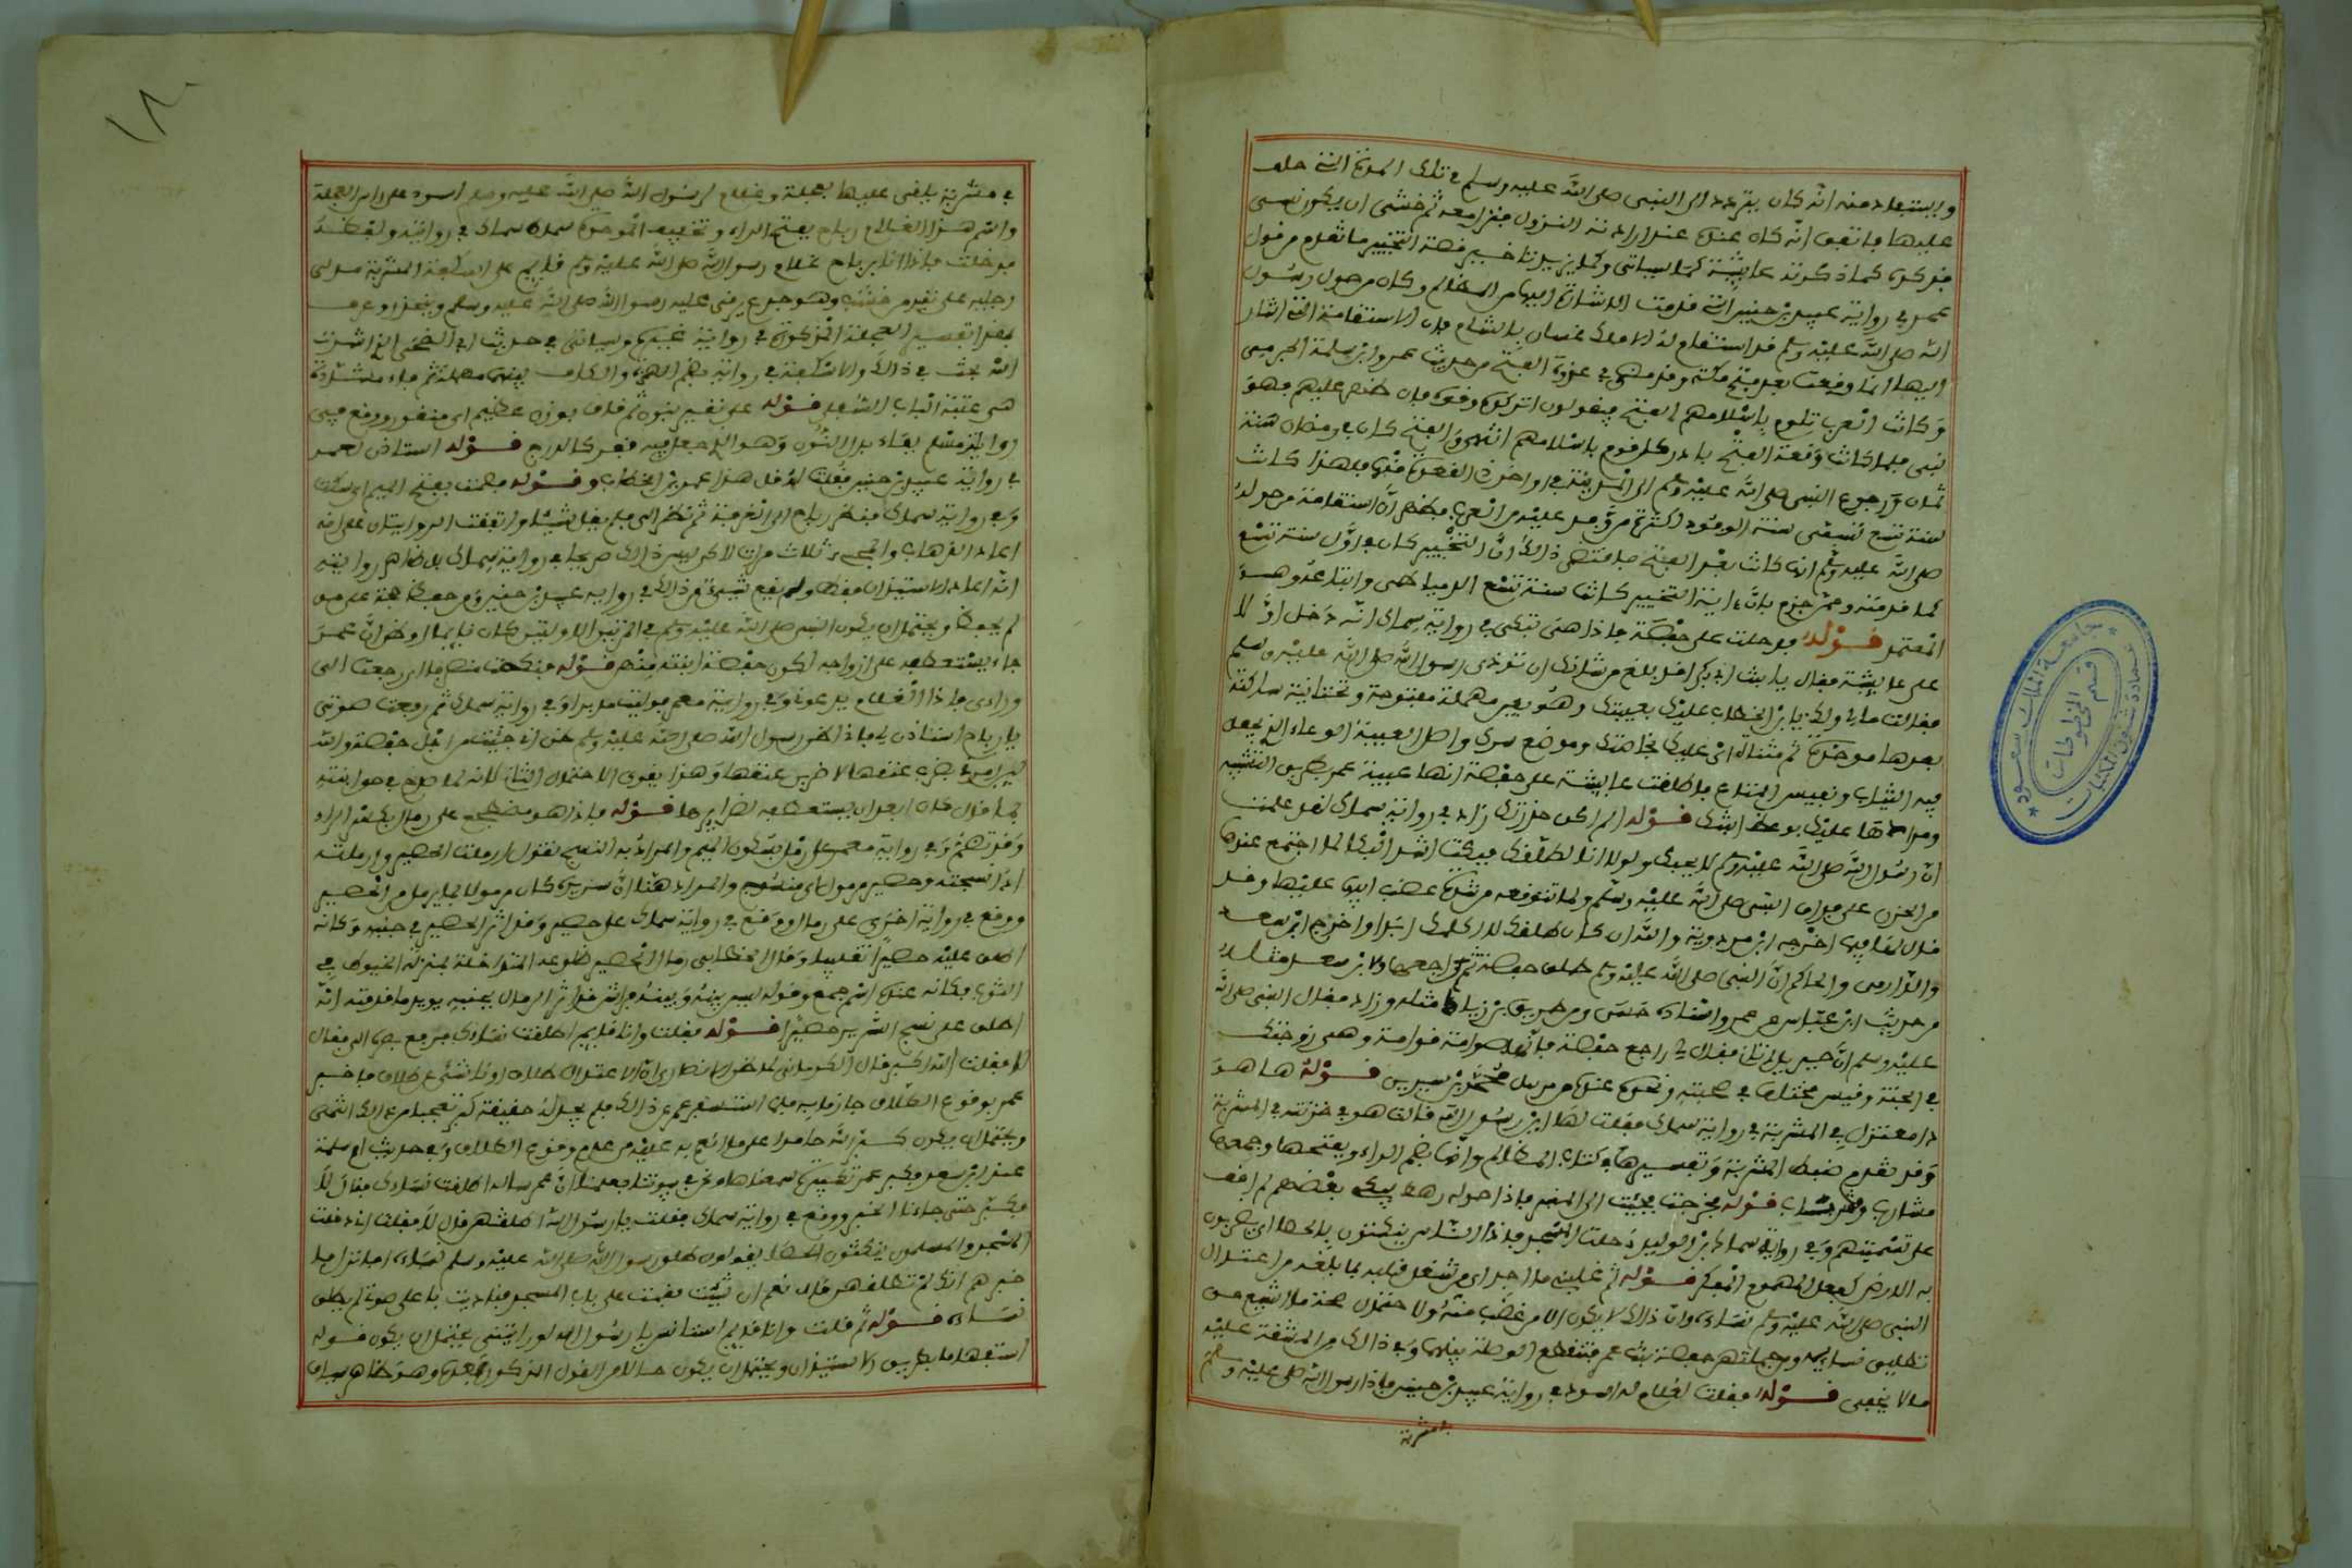 ويستفاد منه انه كان يتردد الى النبي صلى الله عليه وسلم في تلك المدة التي حلف
عليها فاتفق انه كان عنده عند ارادته النزول فنزل معه ثم خشي ان يكون نسي
فذكره كما ذكرته عايشة كما سياتي ومما يويد تاخير قصة التخيير ما تقدم من قول
عمر في رواية عبيد بن حنين التي قدمت الاشارة اليها من المظالم وكان من حول رسول
الله صلى الله عليه وسلم قد استقام له الا ملك غسان بالشام فان الاستقامة التي اشار
اليها انما وقعت بعد فتح مكة وقد مضى في غزوة الفتح من حديث عمرو ابن سلمة الجرمي
وكانت العرب تلوم باسلامهم الفتح فيقولون اتركوه وقومه فان ظهر عليهم فهو
نبي فلما كانت وقعة الفتح بادر كل قوم باسلامهم انتهى والفتح كان في رمضان سنة
ثمان ورجوع النبي صلى الله عليه وسلم الى المدينة في اواخر ذي القعدة منها فلهذا كانت
سنة تسع تسمى سنة الوفود لكثرة من وفد عليه من العرب فظهر ان استقامة من حوله
صلى الله عليه وسلم انما كانت بعد الفتح فاقتضى ذلك ان التخيير كان في اول سنة تسع
كما قدمته وممن جزم بان ءاية التخيير كانت سنة تسع الدمياطي واتباعه وهو
المعتمد قوله فدخلت على حفصة فاذا هي تبكي في رواية سماك انه دخل اولا
على عايشة فقال يا بنت ابي بكر اقد بلغ من شانك ان توذي رسول الله صلى الله عليه وسلم
فقالت ما لي ولك يا ابن الخطاب عليك بعيبتك وهو بعين مهملة مفتوحة وتحتانية ساكنة
بعدها موحدة ثم مثناة اي عليك بخاصتك وموضع سرك واصل العيبة الوعاء الذي يجعل
فيه الثياب ونفيس المتاع فاطلقت عايشة على حفصة انها عيبة عمر بطريق التشبيه
ومرادها عليك بوعظ ابنتك قوله الم اكن حذرتك زاد في رواية سماك لقد علمت
ان رسول الله صلى الله عليه وسلم لا يحبك ولولا انا لطلقك فبكت اشد البكا لما اجتمع عندها
من الحزن على فراق النبي صلى الله عليه وسلم ولما تتوقعه من شدة غضب ابيها عليها وقد
قال لها فيما اخرجه ابن مردوية والله ان كان طلقك لا اكلمك ابدا واخرج ابن سعد
والدارمي والحاكم ان النبي صلى الله عليه وسلم طلق حفصة ثم راجعها ولابن سعد مثله
من حديث ابن عباس عن عمر واسناده حسن ومن طريق بن زيد مثله وزاد فقال النبي صلى الله
عليه وسلم ان جبريل اتاني فقال لي راجع حفصة فانها صوامة قوامة وهي زوجتك
في الجنة وقيس مختلف في صحبته ونحوه عنده من مرسل محمد بن سيرين قوله ها هو
ذا معتزل في المشربة في رواية سماك فقلت لها اين رسول الله قالت هو في خزانته في المشربة
وقد تقدم ضبط المشربة وتفسيرها في كتاب المظالم وانها بضم الراء وبفتحها وجمعها
مشارب ومشربات قوله فخرجت فجئت الى المنبر فاذا حوله رهط يبكي بعضهم لم اقف
على تسميتهم وفي رواية سماك بن الوليد دخلت المسجد فاذا الناس ينكتون بالحصا اي يضربون
به الارض كفعل المهموم المفكر قوله ثم غلبني ما اجد اي من شغل قلبه بما بلغه من اعتزال
النبي صلى الله عليه وسلم نساءه وان ذلك لا يكون الا من غضب منه ولاحتمال صحة ما اشيع من
تطليق نسايه ومن جملتهن حفصة بنت عمر فتنقطع الوصلة بينهما وفي ذلك من المشقة عليه
ما لا يخفى قوله فقلت لغلام له اسود في رواية عبيد بن حنين فاذا رسول الله صلى الله عليه وسلم
في مشربة
١٨٠
في مشربة يرقى عليها بعجلة وغلام لرسول الله صلى الله عليه وسلم اسود على راس العجلة
واسم هذا الغلام رباح بفتح الراء وتخفيف الموحدة سماه سماك في روايته ولفظه
فدخلت فاذا انا برباح غلام رسول الله صلى الله عليه وسلم قايم على اسكفة المشربة مدلي
رجليه على نقير من خشب وهو جذع يرقى عليه رسول الله صلى الله عليه وسلم وينحدر وعرف
بهذا تفسير العجلة المذكورة في رواية غيره وسياتي في حديث ابي الضحى الذي اشرت
اليه بحث في ذلك والاسكفة في رواية بضم الهمزة والكاف بينهما مهملة ثم فاء مشددة
هي عتبة الباب السفلى قوله على نقير بنون ثم قاف بوزن عظيم اي منقور ووقع في
روايات مسلم بفاء بدل النون وهو الذي جعل فيه فقر كالدرج قوله استاذن لعمر
في رواية عبيد بن حنين فقلت له قل هذا عمر بن الخطاب وقوله فصمت بفتح الميم اي سكت
وفي رواية سماك فنظر رباح الى الغرفة ثم نظر الي فلم يقل شيئا واتفقت الروايتان على انه
اعاد الذهاب والمجيء ثلاث مرات لاكن ليس ذلك صريحا في رواية سماك بل ظاهر روايته
انه اعاد الاستيذان فقط ولم يقع شيء من ذلك في رواية عبيد بن حنين ومن حفظ حجة على من
لم يحفظ ويحتمل ان يكون النبي صلى الله عليه وسلم في المرتين الاوليين كان نايما او ظن ان عمر
جاء يستعطفه على ازواجه لكون حفصة ابنته منهن قوله فنكست منصرفا اي رجعت الى
وراءي فاذا الغلام يدعوني وفي رواية معمر فوليت مدبرا وفي رواية سماك ثم رفعت صوتي
يا رباح استاذن لي فاذا اظن رسول الله صلى الله عليه وسلم ظن اني جئت من اجل حفصة والله
لين امرني بضرب عنقها لاضربن عنقها وهذا يقوي الاحتمال الثاني لانه لما صرح في حق ابنته
بما قال كان ابعد ان يستعطفه لضرايرها قوله فاذا هو مضطجع على رمال بكسر الراء
وقد تضم وفي رواية معمر على رمل بسكون الميم والمراد به النسج تقول رملت الحصير وارملته
اذا نسجته وحصير مرمول اي منسوج والمراد هنا ان سريره كان مرمولا بما يرمل من الحصير
ووقع في رواية اخرى على رمال ووقع في رواية سماك على حصير وقد اثر الحصير في جنبه وكانه
اطلق عليه حصيرا تغليبا وقال الخطابي رمال الحصير ضلوعه المتداخلة بمنزلة الخيوط في
الثوب فكانه عنده اسم جمع وقوله ليس بينه وبينه فراش قد اثر الرمال بجنبه يويد ما قدمته انه
اطلق على نسج السرير حصيرا قوله فقلت وانا قايم اطلقت نساءك فرفع بصره الي فقال
لا فقلت الله اكبر قال الكرماني لما ظن الانصاري ان الاعتزال طلاق او ناشئ عن طلاق فاخبر
عمر بوقوع الطلاق جازما به فلما استفسر عمر عن ذلك فلم يجد له حقيقة كبر تعجبا من ذلك انتهى
ويحتمل ان يكون كبر الله حامدا على ما انعم به عليه من عدم وقوع الطلاق وفي حديث ام سلمة
عند ابن سعد فكبر عمر تكبيرة سمعناها ونحن في بيوتنا فعلمنا ان عمر ساله اطلقت نساءك فقال لا
فكبر حتى جاءنا الخبر ووقع في رواية سماك فقلت يا رسول الله اطلقتهن قال لا فقلت اني دخلت
المسجد والمسلمون ينكثون الحصا يقولون طلق رسول الله صلى الله عليه وسلم نساءه افانزل فا
خبرهم انك لم تطلقهن قال نعم ان شئت فقمت على باب المسجد فناديت باعلى صوتي لم يطلق
نساءه قوله ثم قلت وانا قايم استانس يا رسول الله لو رايتني يحتمل ان يكون قوله
استفهاما بطريق الاستيذان ويحتمل ان يكون حالا من القول المذكور بعده وهو ظاهر سياق
جامعة الملك سعود
عمادة شؤون المكتبات
قسم المخطوطات